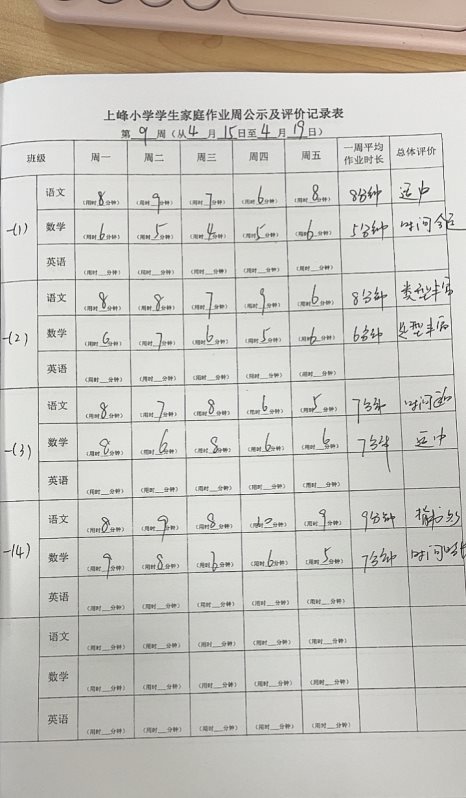 上峰小学学生家庭作业周公示及评价记录表
第 9 周（从 4 月 15 日至 4 月 19 日）
班级 周一 周二 周三 周四 周五 一周平均作业时长 总体评价
一(1) 语文 （用时 8 分钟） （用时 9 分钟） （用时 7 分钟） （用时 6 分钟） （用时 8 分钟） 8分钟 适中
数学 （用时 6 分钟） （用时 5 分钟） （用时 4 分钟） （用时 5 分钟） （用时 6 分钟） 5分钟 时间合适
英语 （用时__分钟） （用时__分钟） （用时__分钟） （用时__分钟） （用时__分钟）
一(2) 语文 （用时 8 分钟） （用时 8 分钟） （用时 7 分钟） （用时 9 分钟） （用时 6 分钟） 8分钟 类型丰富
数学 （用时 6 分钟） （用时 7 分钟） （用时 6 分钟） （用时 5 分钟） （用时 6 分钟） 6分钟 类型丰富
英语 （用时__分钟） （用时__分钟） （用时__分钟） （用时__分钟） （用时__分钟）
一(3) 语文 （用时 8 分钟） （用时 7 分钟） （用时 8 分钟） （用时 6 分钟） （用时 5 分钟） 7分钟 时间适中
数学 （用时 8 分钟） （用时 6 分钟） （用时 8 分钟） （用时 6 分钟） （用时 6 分钟） 7分钟 适中
英语 （用时__分钟） （用时__分钟） （用时__分钟） （用时__分钟） （用时__分钟）
一(4) 语文 （用时 8 分钟） （用时 9 分钟） （用时 8 分钟） （用时 10 分钟） （用时 9 分钟） 9分钟
数学 （用时 9 分钟） （用时 8 分钟） （用时 分钟） （用时 6 分钟） （用时 5 分钟） 7分钟 时间
英语 （用时__分钟） （用时__分钟） （用时__分钟） （用时__分钟） （用时__分钟）
语文 （用时__分钟） （用时__分钟） （用时__分钟） （用时__分钟） （用时__分钟）
数学 （用时__分钟） （用时__分钟） （用时__分钟） （用时__分钟） （用时__分钟）
英语 （用时__分钟） （用时__分钟） （用时__分钟） （用时__分钟） （用时__分钟）